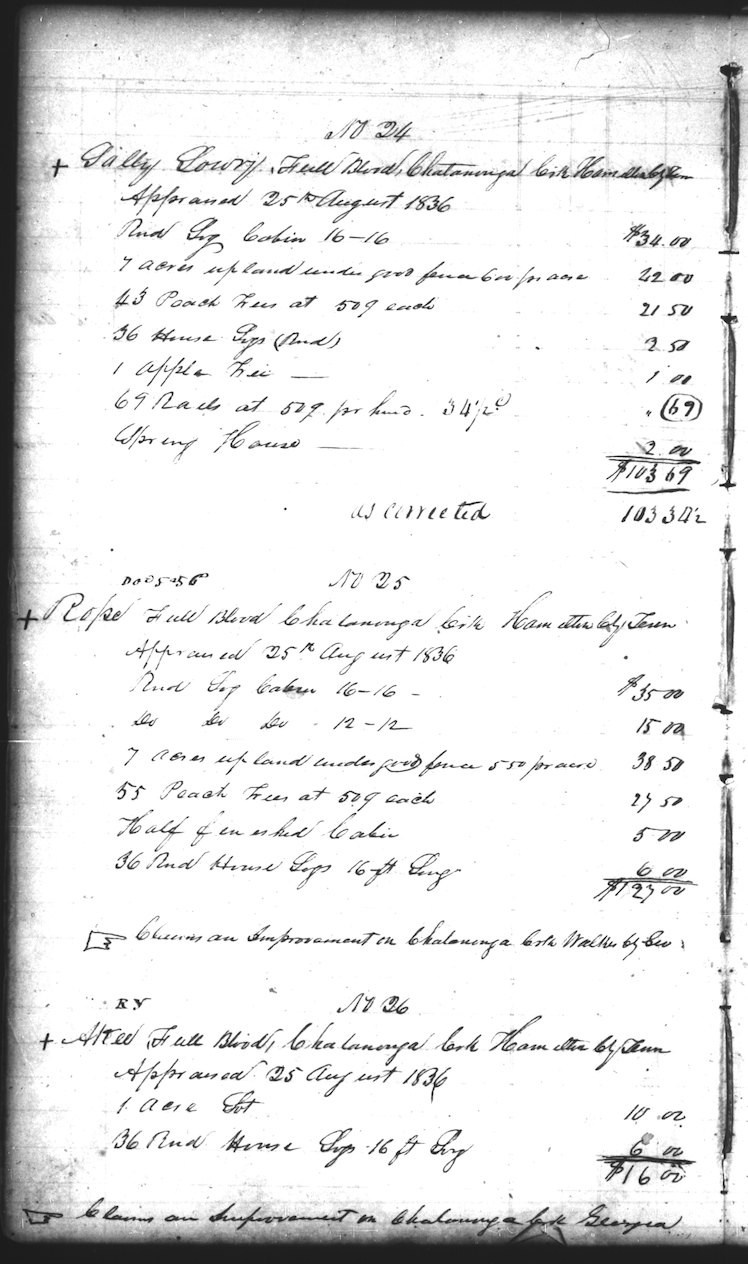 No 24
+ Sally Lowry, Full Blood, Chatanooga Crk Hamilton Cty Tenn
Appraised 25th August 1836
Rnd Log Cabin 16-16 $34.00
7 acres upland under good fence 600 pr acre 42 00
43 Peach Trees at 50¢ each 21 50
36 House Logs (Rnd) 2 50
1 Apple Tree — 1 00
69 Rails at 50¢ pr hund. 34½c " 69
Spring House — 2 00
$103 69
as corrected 103 34½
No 25
+ Rope Full Blood Chatanooga Crk Hamilton Cty Tenn
Appraised 25th August 1836
Rnd Log Cabin 16-16 - $35 00
Do Do Do - 12-12 15 00
7 acres upland under good fence 550 pr acre 38 50
55 Peach Trees at 50¢ each 27 50
Half finished Cabin 5 00
36 Rnd House Logs 16 ft Long 6 00
$127 00
☞ Claims an Improvement on Chatanooga Crk Walker Cty Geo
No 26
+ Full Blood, Chatanooga Crk Hamilton Cty Tenn
Appraised 25 August 1836
1 Acre Lot 10 00
36 Rnd House Logs 16 ft Long 6 00
$16 00
☞ Claims an Improvement on Chatanooga Crk Georgia